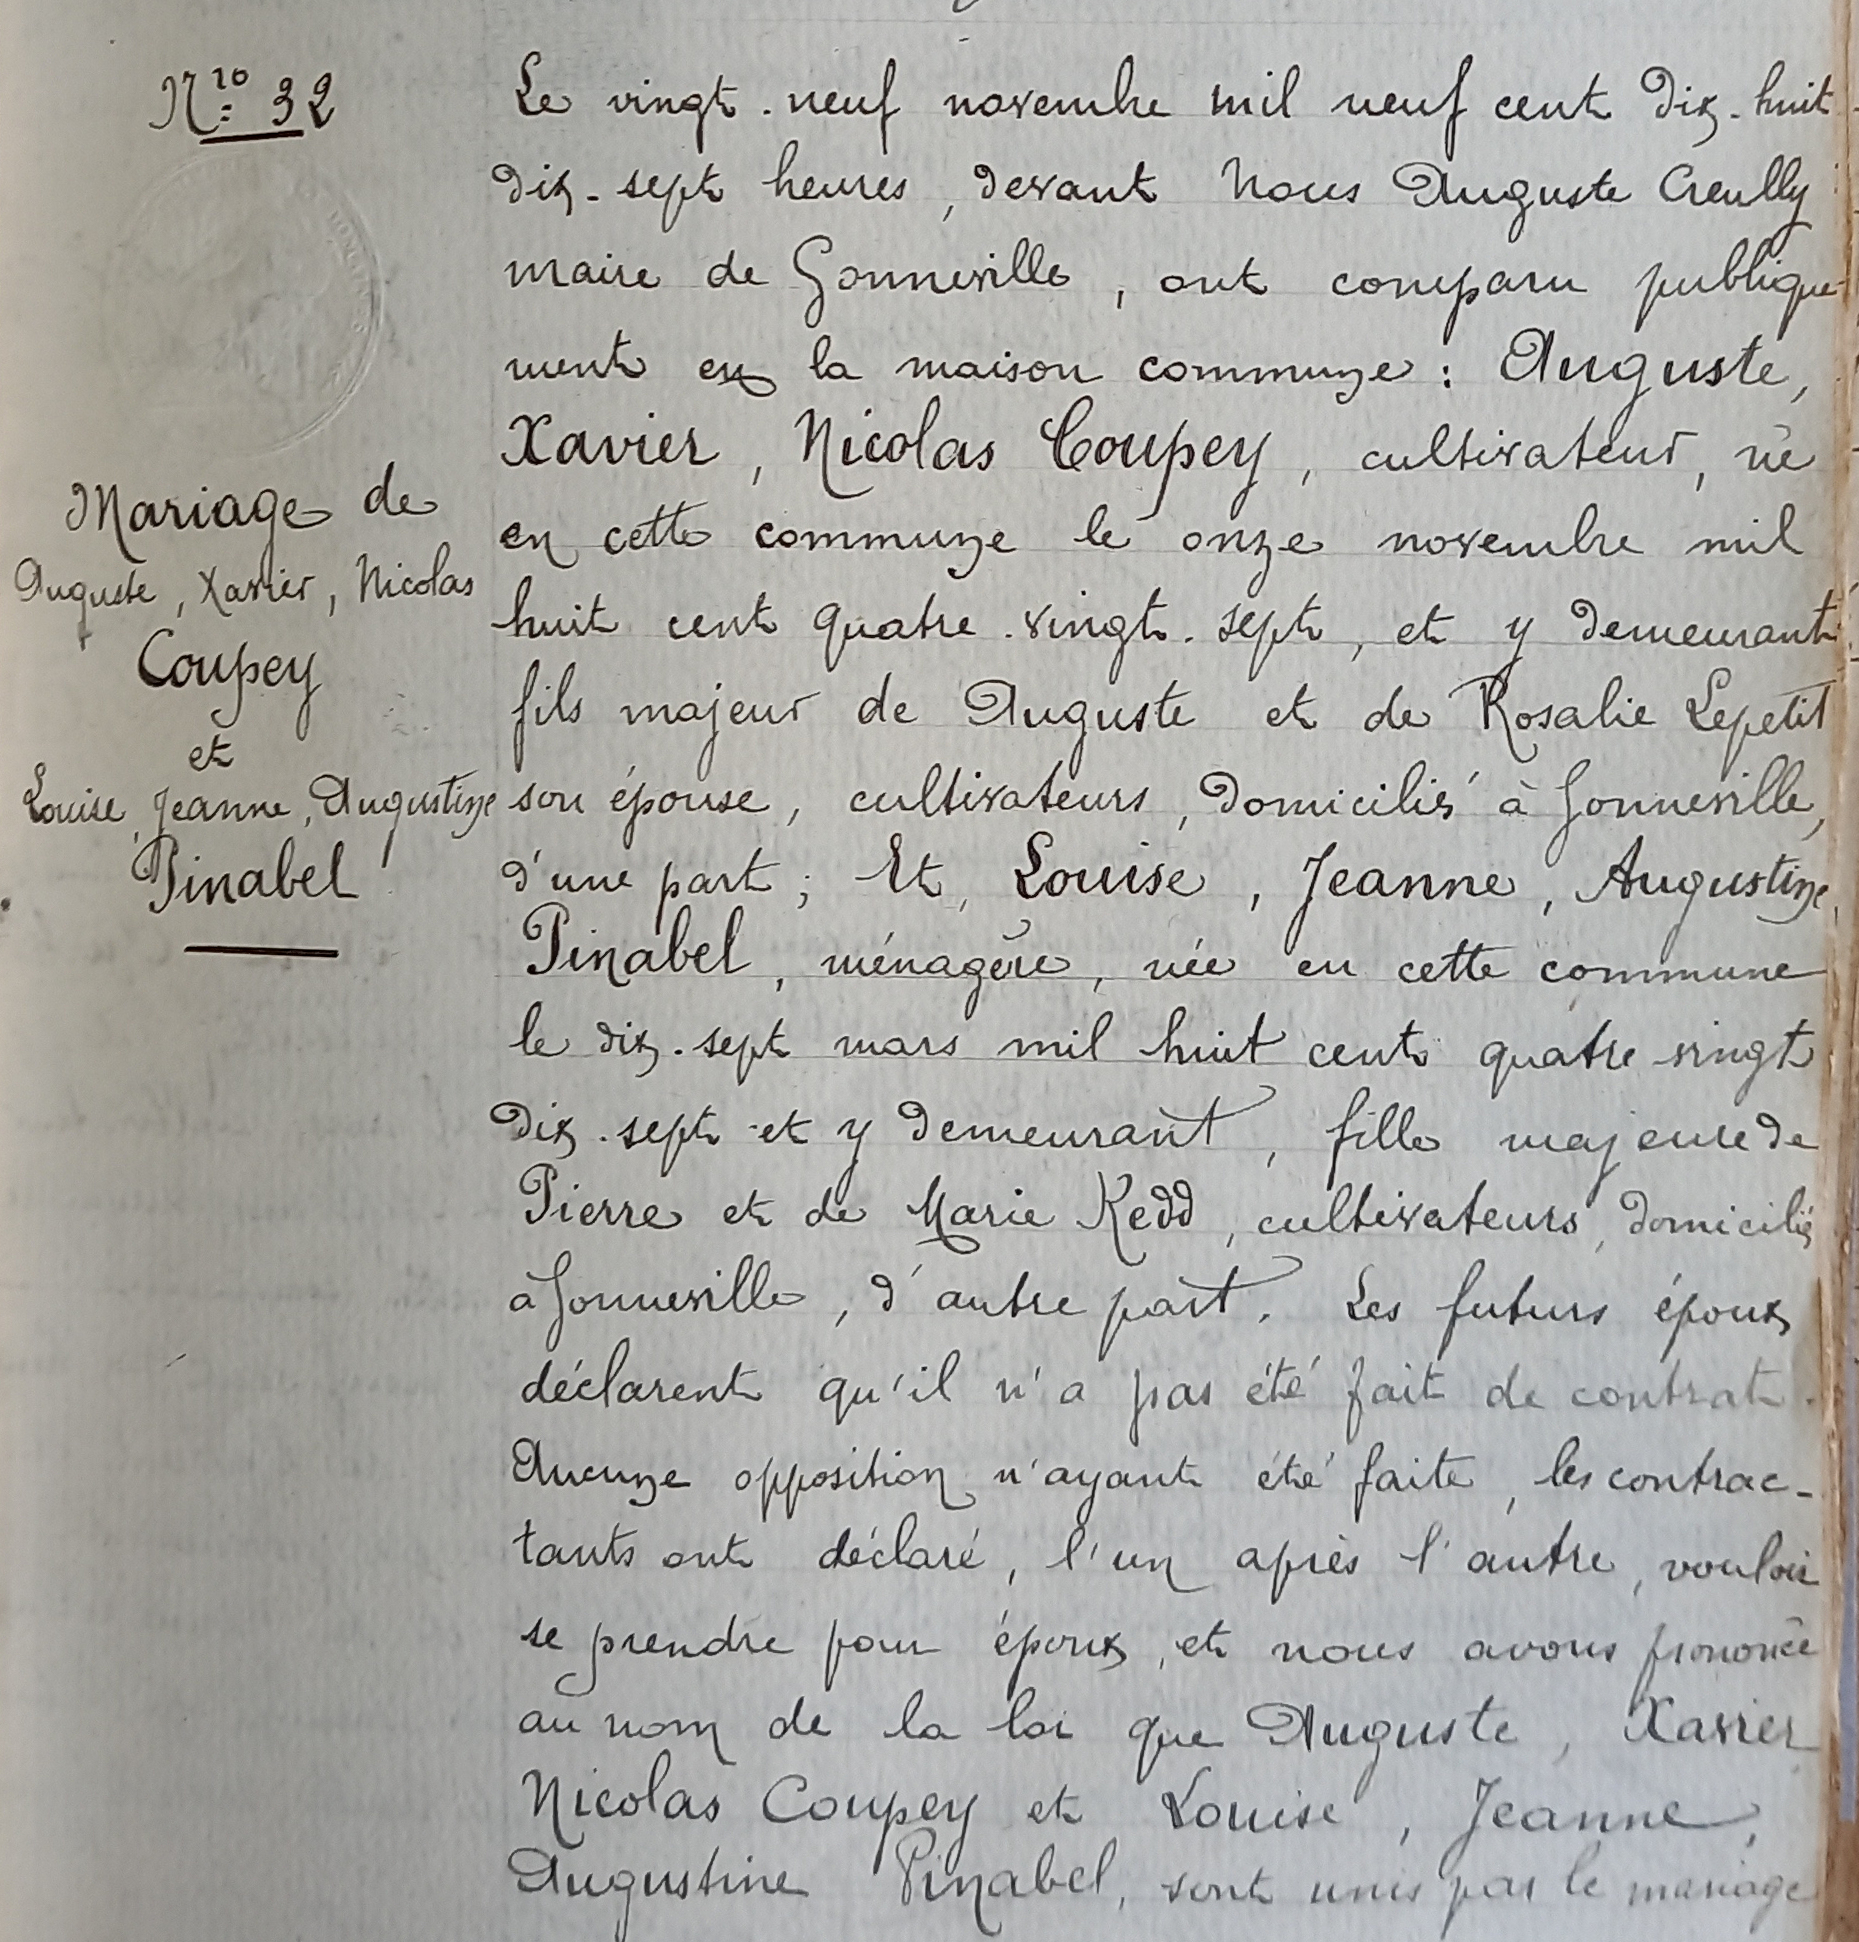 Nro 32
Mariage de
Auguste, Xavier, Nicolas
Coupey
et
Louise, Jeanne, Augustine
Pinabel
Le vingt-neuf novembre mil neuf cent dix-huit
dix-sept heures, devant Nous Auguste Creully
maire de Gonneville, ont comparu publique-
ment en la maison commune : Auguste,
Xavier, Nicolas Coupey, cultivateur, né
en cette commune le onze novembre mil
huit cent quatre-vingt-sept, et y demeurant
fils majeur de Auguste et de Rosalie Lepetit
son épouse, cultivateurs, domiciliés à Gonneville,
d'une part ; Et, Louise, Jeanne, Augustine,
Pinabel, ménagère, née en cette commune
le dix-sept mars mil huit cent quatre-vingt
dix-sept et y demeurant, fille majeure de
Pierre et de Marie Kedd, cultivateurs, domiciliés
à Gonneville, d'autre part. Les futurs époux
déclarent qu'il n'a pas été fait de contrat.
Aucune opposition n'ayant été faite, les contrac-
tants ont déclaré, l'un après l'autre, vouloir
se prendre pour époux, et nous avons prononcé
au nom de la loi que Auguste, Xavier
Nicolas Coupey et Louise, Jeanne,
Augustine Pinabel, sont unis par le mariage